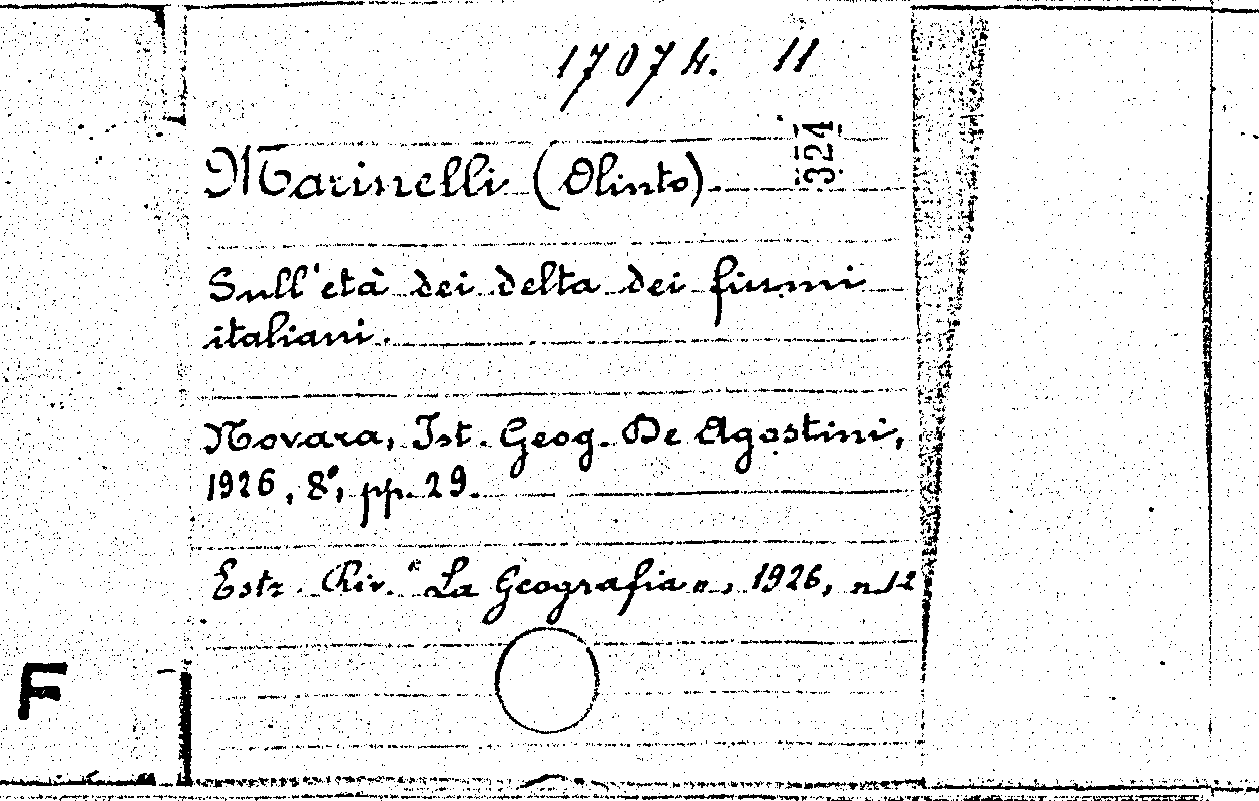 17074. 11
324
Marinelli (Olinto).
Sull'età dei delta dei fiumi
italiani.
Novara, Ist. Geog. De Agostini,
1926, 8°, pp. 29.
Estr. Riv. "La Geografia", 1926, n. 1-2
F